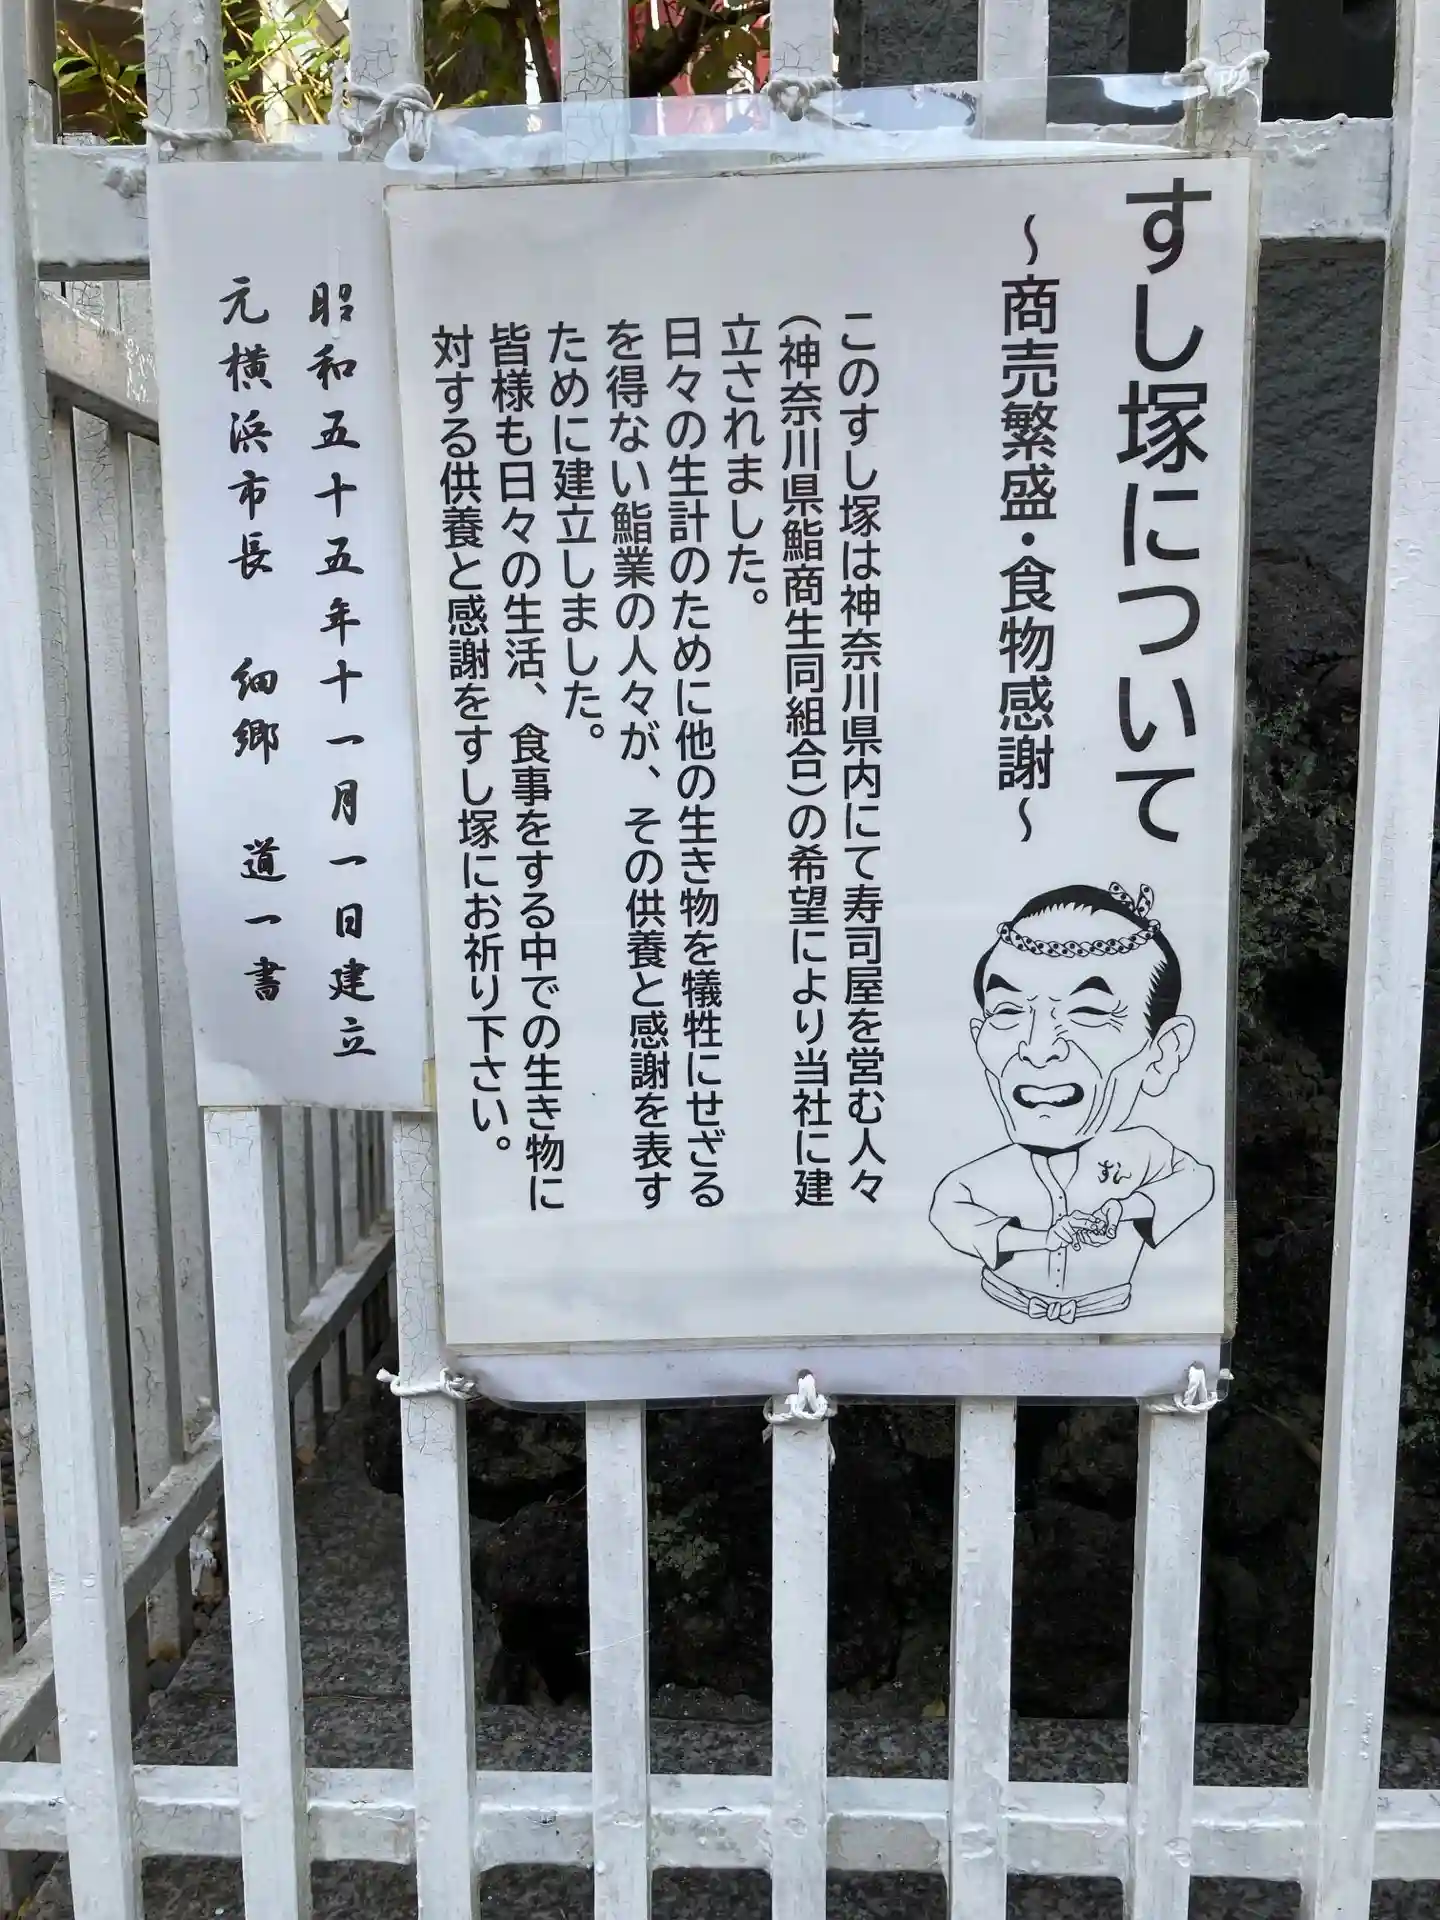 すし塚について
～商売繁盛・食物感謝～
このすし塚は神奈川県内にて寿司屋を営む人々
（神奈川県鮨商生同組合）の希望により当社に建
立されました。
日々の生計のために他の生き物を犠牲にせざる
を得ない鮨業の人々が、その供養と感謝を表す
ために建立しました。
皆様も日々の生活、食事をする中での生き物に
対する供養と感謝をすし塚にお祈り下さい。
すし
昭和五十五年十一月一日建立
元横浜市長 細郷 道一書